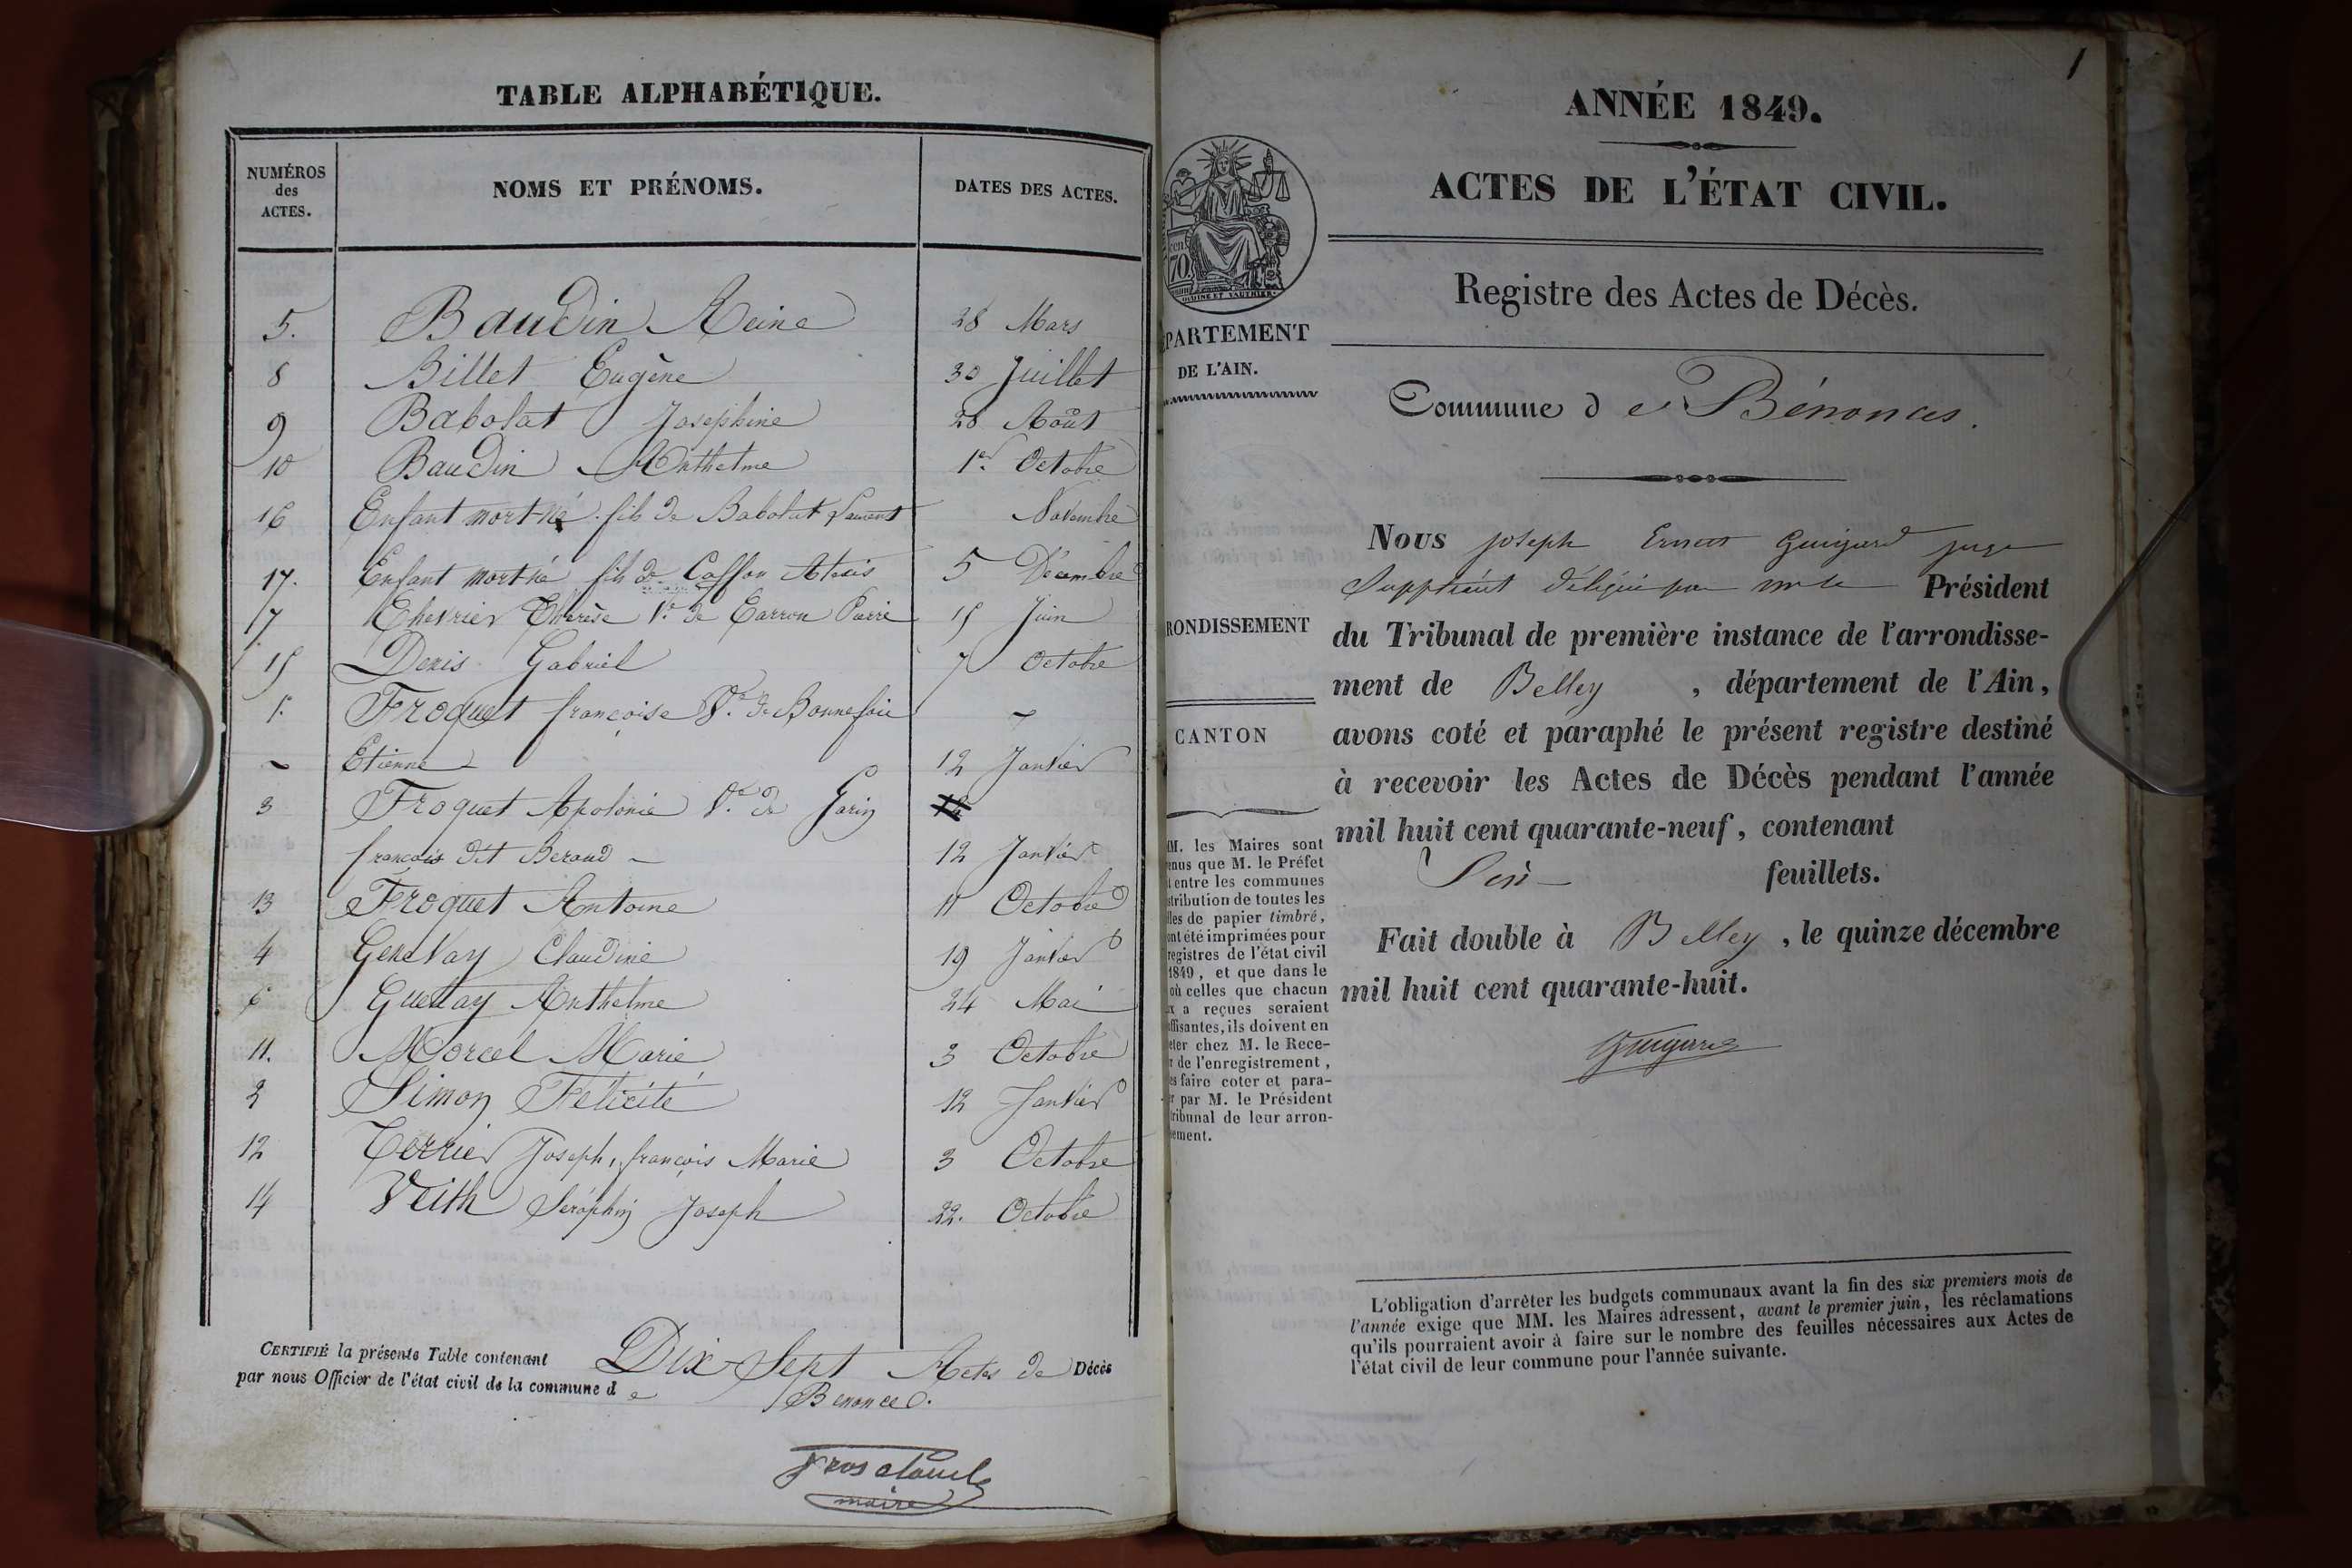 TABLE ALPHABÉTIQUE.
NUMÉROS des ACTES. NOMS ET PRÉNOMS. DATES DES ACTES.
5. Baudin Reine 28 Mars
8 Billet Eugène 30 Juillet
9 Babolat Josephine 28 Août
10 Baudin Anthelme 1er Octobre
16 Enfant mort-né fils de Babolat Laurent Novembre
17. Enfant mort né fils de Caffon Alexis 5 Décembre
7 Chevrier Therèse Ve de Carron Pierre 15 Juin
15 Denis Gabriel 7 Octobre
1. Froquet françoise Ve de Bonnefoie
Etienne 12 Janvier
3 Froquet Apolonie Ve de Garin
françois dit Beraud 12 Janvier
13 Froquet Antoine 11 Octobre
4 Genevay Claudine 19 Janvier
6 Guettay Anthelme 24 Mai
11. Morcel Marie 3 Octobre
2 Simon Félicité 12 Janvier
12 Terrier Joseph, françois Marie 3 Octobre
14 Veith Séraphin Joseph 22. Octobre
CERTIFIÉ la présente Table contenant Dix-Sept Actes de Décès
par nous Officier de l'état civil de la commune d e Benonces.
maire
1
ANNÉE 1849.
ACTES DE L'ÉTAT CIVIL.
Registre des Actes de Décès.
70
PARTEMENT
DE L'AIN.
Commune d e Bénonces.
Nous joseph Ernest Guigard juge
Suppléant délégué par mr le Président
RONDISSEMENT
du Tribunal de première instance de l'arrondisse-
ment de Belley , département de l'Ain,
CANTON
avons coté et paraphé le présent registre destiné
à recevoir les Actes de Décès pendant l'année
mil huit cent quarante-neuf, contenant
Six feuillets.
Fait double à Belley , le quinze décembre
mil huit cent quarante-huit.
Guigard
MM. les Maires sont
enus que M. le Préfet
entre les communes
stribution de toutes les
lles de papier timbré,
ont été imprimées pour
registres de l'état civil
1849, et que dans le
où celles que chacun
x a reçues seraient
ffisantes, ils doivent en
eter chez M. le Rece-
r de l'enregistrement,
es faire coter et para-
r par M. le Président
tribunal de leur arron-
ement.
L'obligation d'arrêter les budgets communaux avant la fin des six premiers mois de
l'année exige que MM. les Maires adressent, avant le premier juin, les réclamations
qu'ils pourraient avoir à faire sur le nombre des feuilles nécessaires aux Actes de
l'état civil de leur commune pour l'année suivante.